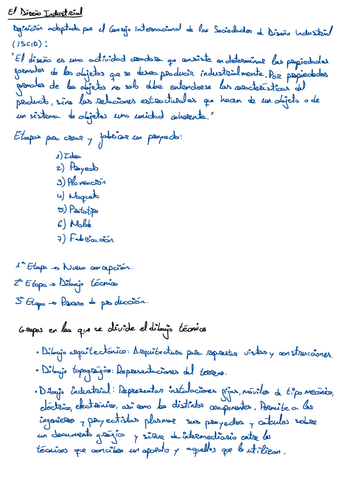 El Diseño Industrial
Definición adoptada por el Consejo Internacional de las Sociedades de Diseño Industrial
(ISCID):
"El diseño es una actividad creadora que consiste en determinar las propiedades
formales de los objetos que se desea producir industrialmente. Por propiedades
formales de los objetos no solo debe entenderse las características del
producto, sino las relaciones estructurales que hacen de un objeto o de
un sistema de objetos una unidad coherente."
Etapas para crear y fabricar un proyecto:
1) Idea
2) Proyecto
3) Planeación
4) Maqueta
5) Prototipo
6) Molde
7) Fabricación
1ª Etapa → Nueva concepción.
2ª Etapa → Dibujo técnico
3ª Etapa → Proceso de producción.
Grupos en los que se divide el dibujo técnico
• Dibujo arquitectónico: Arquitectura para representar vistas y construcciones.
• Dibujo topográfico: Representaciones del terreno.
• Dibujo industrial: Representar instalaciones fijas, móviles de tipo mecánico,
eléctrico, electrónico, así como los distintos componentes. Permite a los
ingenieros y proyectistas plasmar sus proyectos y cálculos sobre
un documento gráfico y sirve de intermediario entre los
técnicos que conciben un aparato y aquellos que lo utilizan.